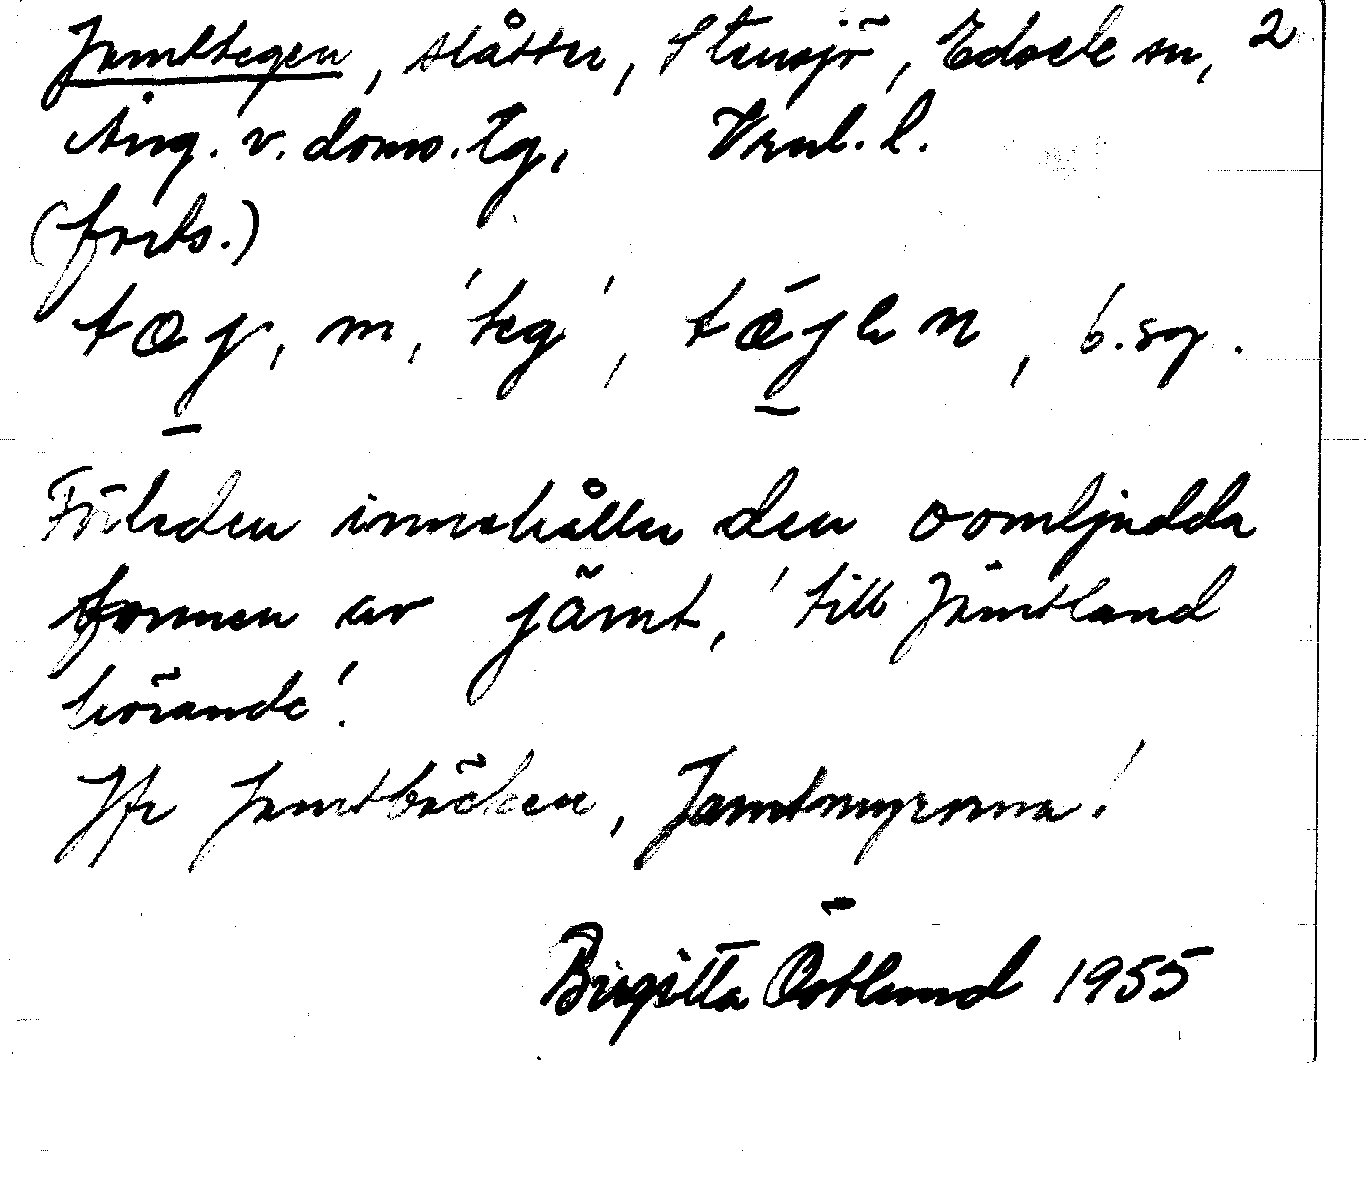 Jamttegen, slåtter, Stensjö, Edsele sn, 2
Ång. v. doms. tg, Vrnl. l.
(forts.)
tæg, m, 'teg', tægen, b. sg.
Förleden innehåller den oomljudda
formen av jämt, 'till Jämtland
hörande'.
Jfr Jamtbäcken, Jamtmyrorna!
Birgitta Östlund 1955